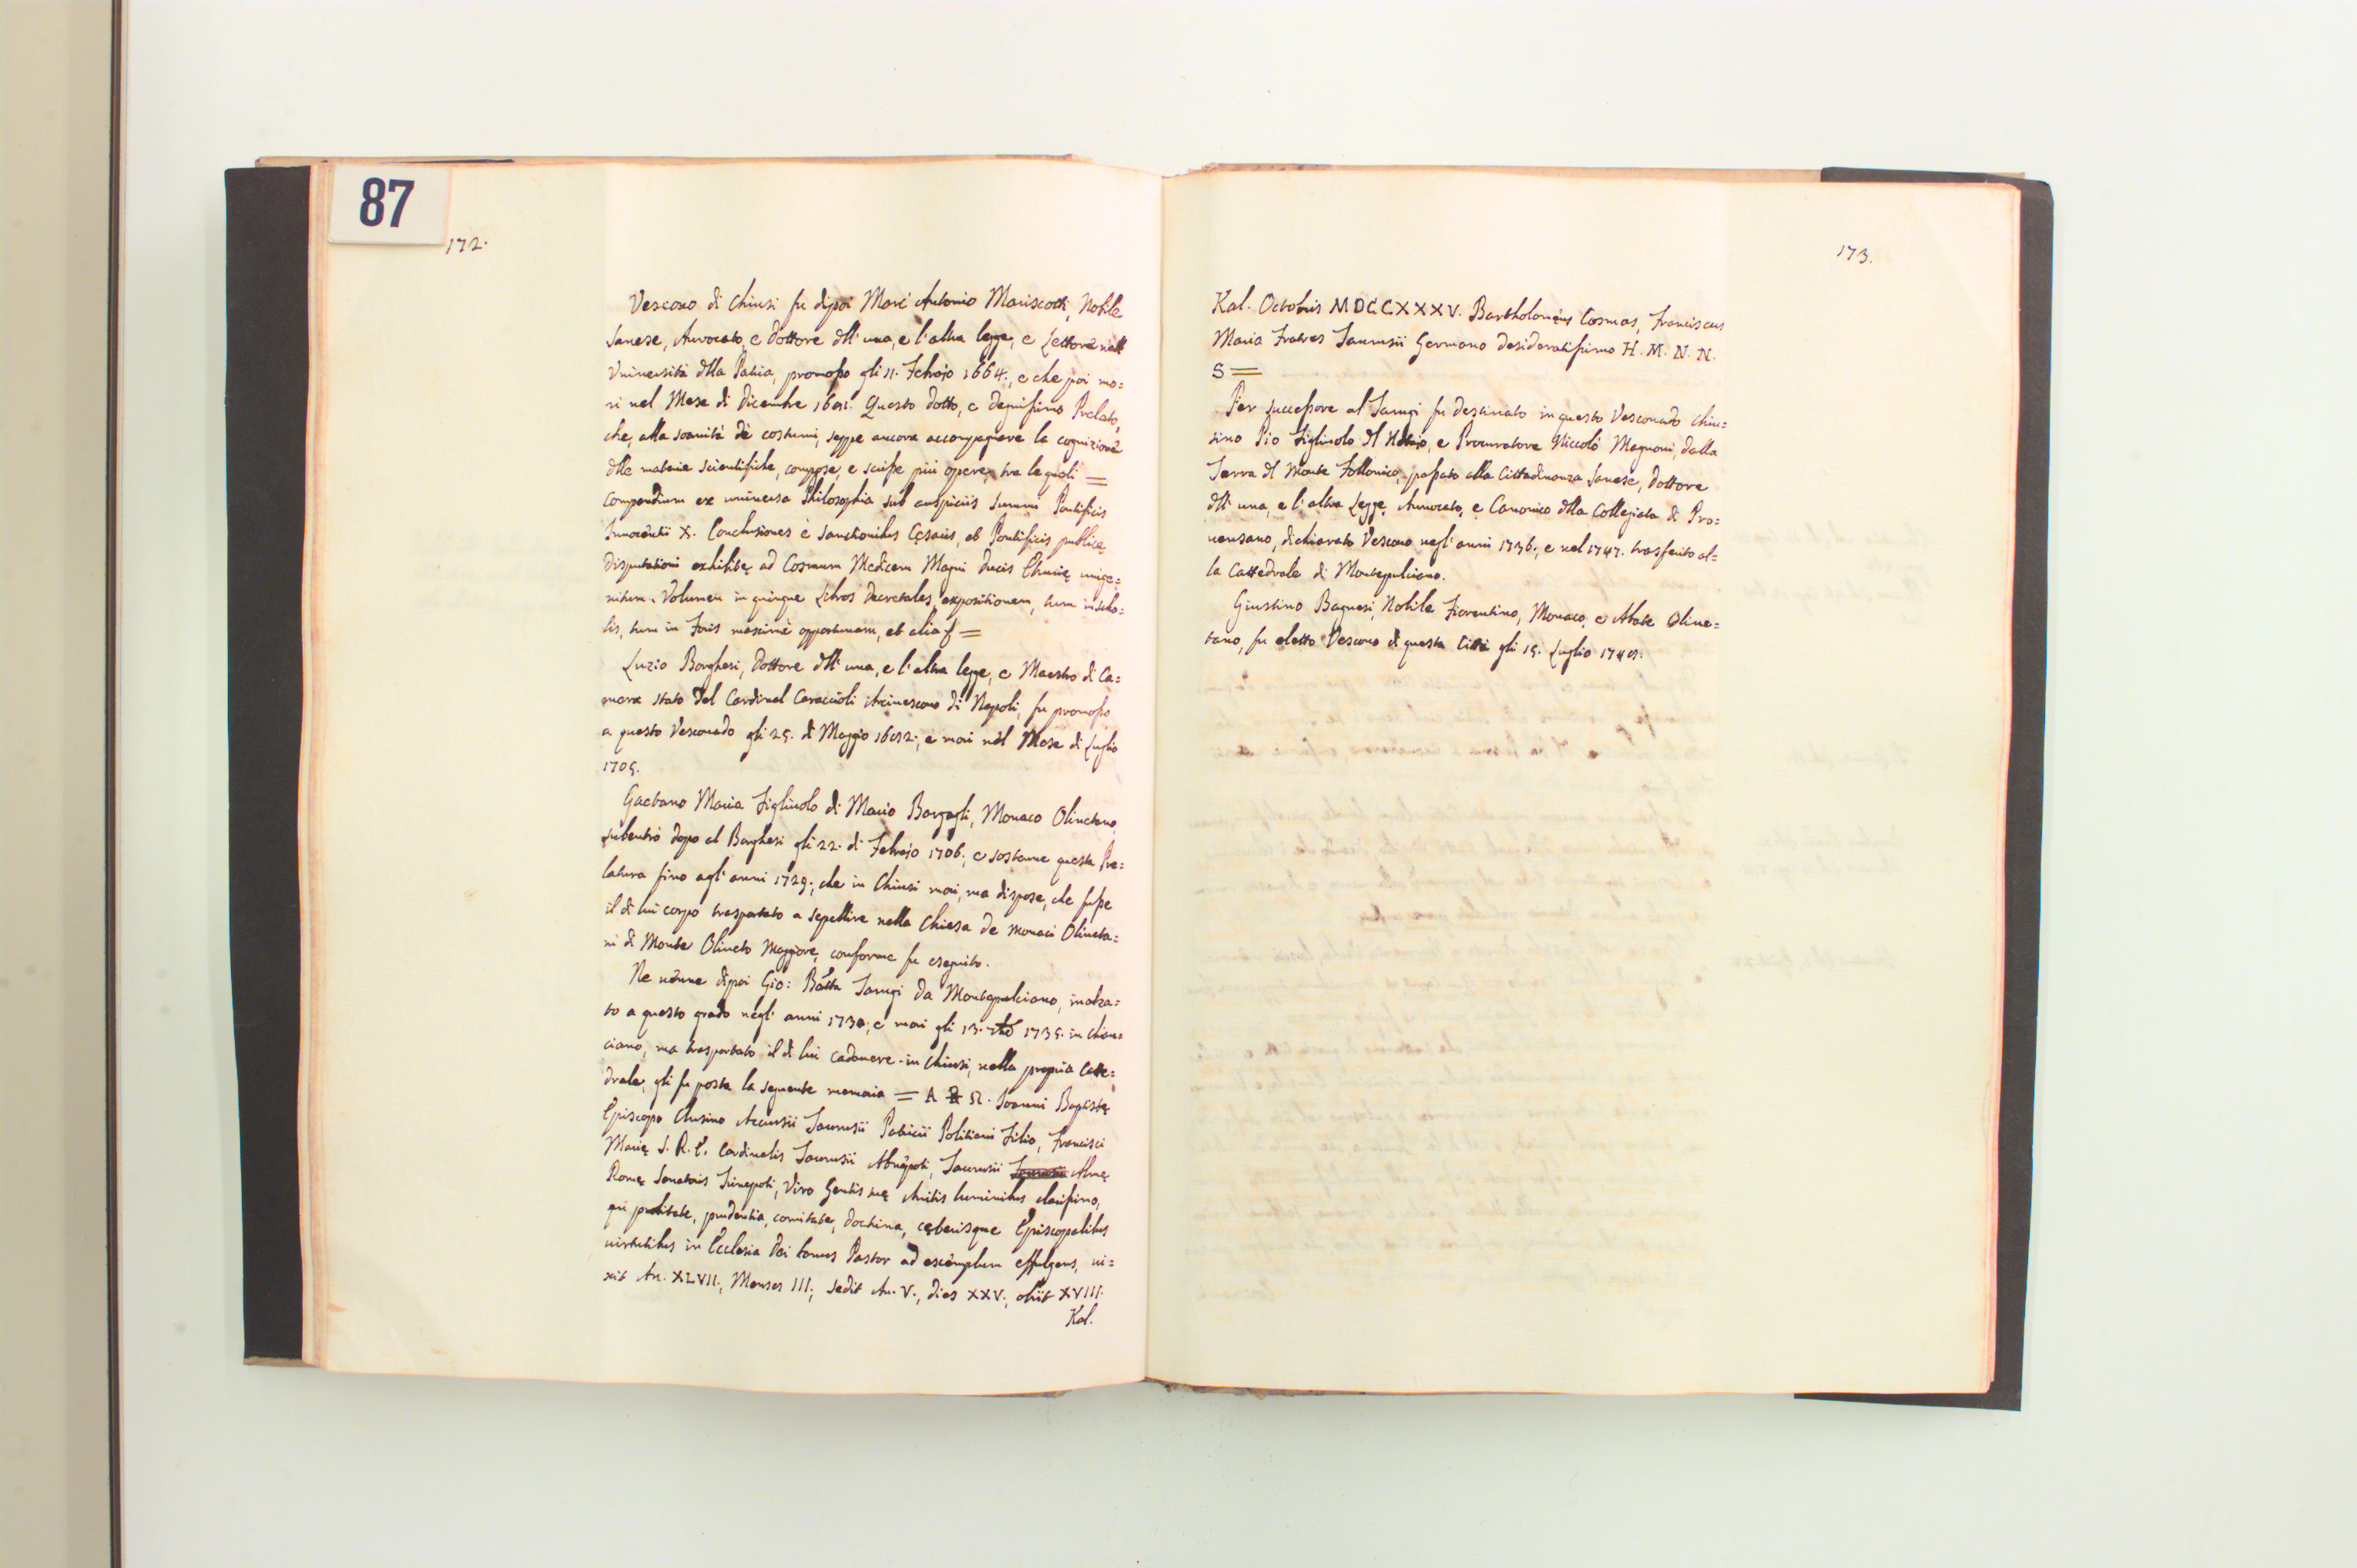 87
172.
Vescovo di Chiusi fu dipoi Marc' Antonio Mariscotti, Nobile
Sanese, Avvocato, e Dottore dll' una, e l'altra legge, e Lettore nell'
Vniversità dlla Patria, promosso gli 11. Febrajo 1664., e che poi mo=
ri nel Mese di Dicembre 1681. Questo dotto, e degnissimo Prelato,
che, alla soavità de costumi, seppe ancora accompagnare la cognizione
dlle materie scientifiche, compose, e scrisse più opere, tra le quali =
Compendium ex universa Philosophia sub auspiciis Summi Pontificis
Innocentii X. Conclusiones è sanctionibus Cęsareis, et Pontificis publicę
disputationi exhibitę ad Cosmum Medicem Magni Ducis Etrurię unige=
nitum. Volumen in quinque Libros Decretales, expositionem, tum in scho=
lis, tum in Foris maximè opportunam, et alia =
Luzio Borghesi, Dottore dll' una, e l'altra legge, e Maestro di Ca=
mera stato del Cardinal Caraccioli Arcivescovo di Napoli, fu promosso
a questo Vescovado gli 25. di Maggio 1682., e mori nel Mese di Luglio
1705.
Gaetano Maria Figliuolo di Mario Bargagli, Monaco Olivetano,
subentrò dopo al Borghesi gli 22. di Febrajo 1706., e sostenne questa Pre=
latura fino agl' anni 1729., che in Chiusi mori, ma dispose, che fusse
il di lui corpo trasportato a sepellire nella Chiesa de Monaci Oliveta=
ni di Monte Oliveto Maggiore, conforme fu eseguito.
Ne venne dipoi Gio: Batta Tarugi da Montepulciano, inalza=
to a questo grado negl' anni 1730., e mori gli 13. 7bre 1735. in Chian=
ciano, ma trasportato il di lui cadavere in Chiusi, nella propria Catte=
drale, gli fu posta la seguente memoria = A Ω. Joanni Baptistę
Episcopo Clusino Accursii Taurusii Patricii Politiani Filio, Francisci
Marię S. R. E. Cardinalis Taurusii Abnepoti, Taurusii Almę
Romę Senatoris Trinepoti, Viro Gentis suę Avitis luminibus clarissimo,
qui probitate, prudentia, comitate, doctrina, cęterisque Episcopalibus
virtutibus in Ecclesia Dei bonus Pastor ad exemplum effulgens, vi=
xit An. XLVII., Menses III., sedit An. V., dies XXV., obiit XVIII.
Kal.
173.
Kal. Octobris MDCCXXXV. Bartholomęus Cosmas, Franciscus
Maria Fratres Taurusii Germano Desideratissimo H. M. N. N.
S =
Per successore al Tarugi fu destinato in questo Vescovado Chiu=
sino Pio Figliuolo dl Notajo, e Procuratore Niccolò Magnoni, dalla
Terra dl Monte Follonico, passato alla Cittadinanza Sanese, Dottore
dll' una, e l'altra Legge, Avvocato, e Canonico dlla Collegiata di Pro=
venzano, dichiarato Vescovo negl' anni 1736., e nel 1747. trasferito al=
la Cattedrale di Montepulciano.
Giustino Bagnesi, Nobile Fiorentino, Monaco, e Abate Olive=
tano, fu eletto Vescovo di questa Città gli 15. Luglio 1748.